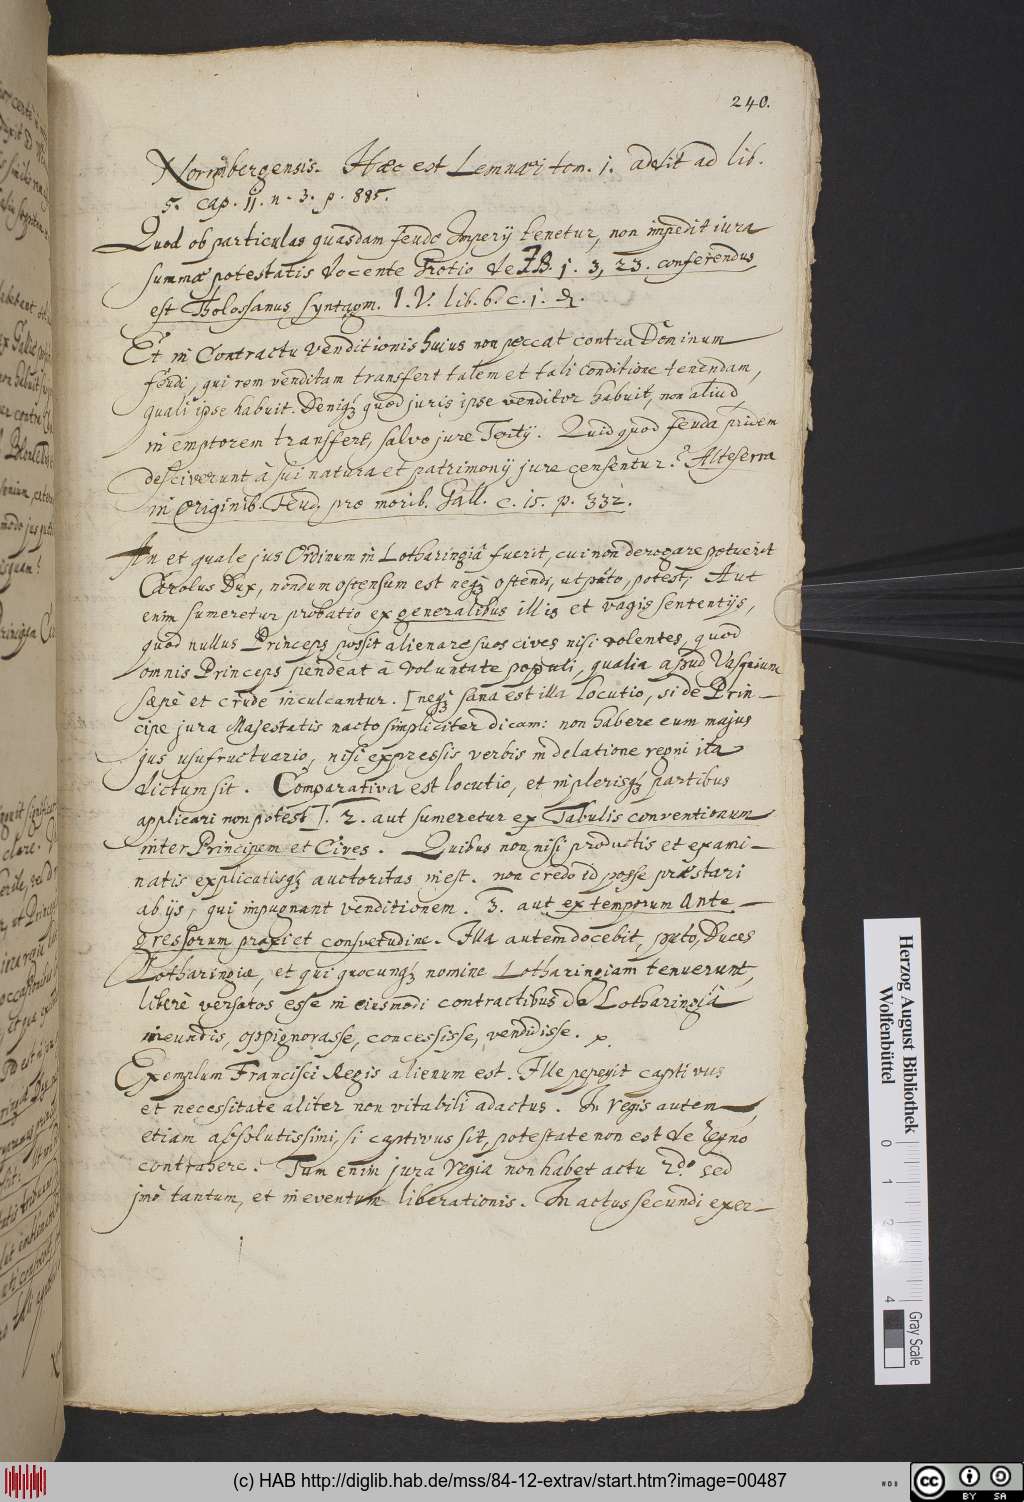 240.
Norimbergensis. Haec est Lemnaei tom. 1. addit ad lib.
5. cap. 11. n. 3. p. 885.
Quod ob particulas quasdam feudo Imperij tenetur, non impedit iura
summae potestatis docente Grotio de I.B. 1. 3, 23. conferendus
est Tholossanus syntagm. I. V. lib. 6. c. 1.
Et in Contractu venditionis huius non peccat contra Dominum
feudi, qui rem venditam transfert talem et tali conditione tenendam,
quali ipse habuit. Deniq; quod juris ipse venditor habuit, non aliud,
in emptorem transfert, salvo jure Tertij. Quid quod feuda pridem
desciverunt à sui natura et patrimonij jure censentur? Alteserra
in originib. Feud. pro morib. Gall. c. 15. p. 332.
An et quale jus Ordinum in Lotharingiâ fuerit, cui non derogare potuerit
Carolus Dux, nondum ostensum est neq; ostendi, ut puto, potest; Aut
enim sumeretur probatio ex generalibus illis et vagis sententijs,
quod nullus Princeps possit alienare suos cives nisi volentes, quod
omnis Princeps pendeat à voluntate populi, qualia apud Vasquium
saepè et crudè inculcantur. [neq; sana est illa locutio, si de Prin-
cipe jura Majestatis nacto simpliciter dicam: non habere eum majus
jus usufructuario, nisi expressis verbis in delatione regni ita
dictum sit. Comparativa est locutio, et in plerisq; partibus
applicari non potest]. 2. aut sumeretur ex Tabulis conventionum
inter Principem et Cives. Quibus non nisi productis et exami-
natis explicatisq; auctoritas inest. non credo id posse praestari
ab ijs, qui impugnant venditionem. 3. aut ex temporum Ante-
gressorum praxi et consvetudine. Illa autem docebit, puto, Duces
Lotharingiae, et qui quocunq; nomine Lotharingiam tenuerunt,
liberè versatos esse in eiusmodi contractibus de Lotharingiâ
ineundis, oppignorasse, concessisse, vendidisse.
Exemplum Francisci Regis alienum est. Ille pepegit captivus
et necessitate aliter non vitabili adactus. In regis autem,
etiam absolutissimi, si captivus sit, potestate non est de regno
contrahere. Tum enim jura regia non habet actu 2do sed
imò tantum, et in eventum liberationis. In actus secundi exer-
Herzog August Bibliothek
Wolfenbüttel
0 1 2 4
Gray Scale
(c) HAB http://diglib.hab.de/mss/84-12-extrav/start.htm?image=00487
cc BY SA